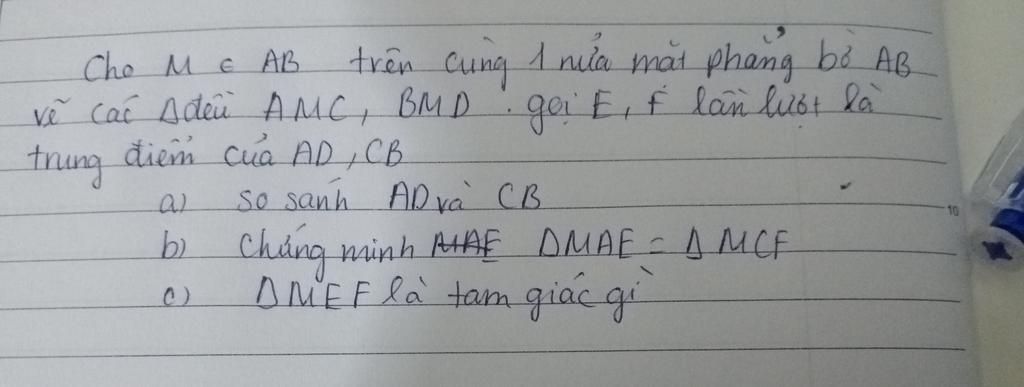 Cho M ∈ AB trên cùng 1 nửa mặt phẳng bờ AB
vẽ các Δ đều AMC, BMD. gọi E, F lần lượt là
trung điểm của AD, CB
a) so sánh AD và CB
b) Chứng minh ΔMAE = ΔMCF
c) ΔMEF là tam giác gì
10